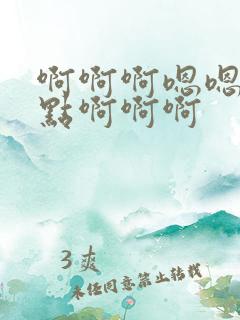 啊啊啊嗯嗯
點啊啊啊
3爽
未经同意禁止转载